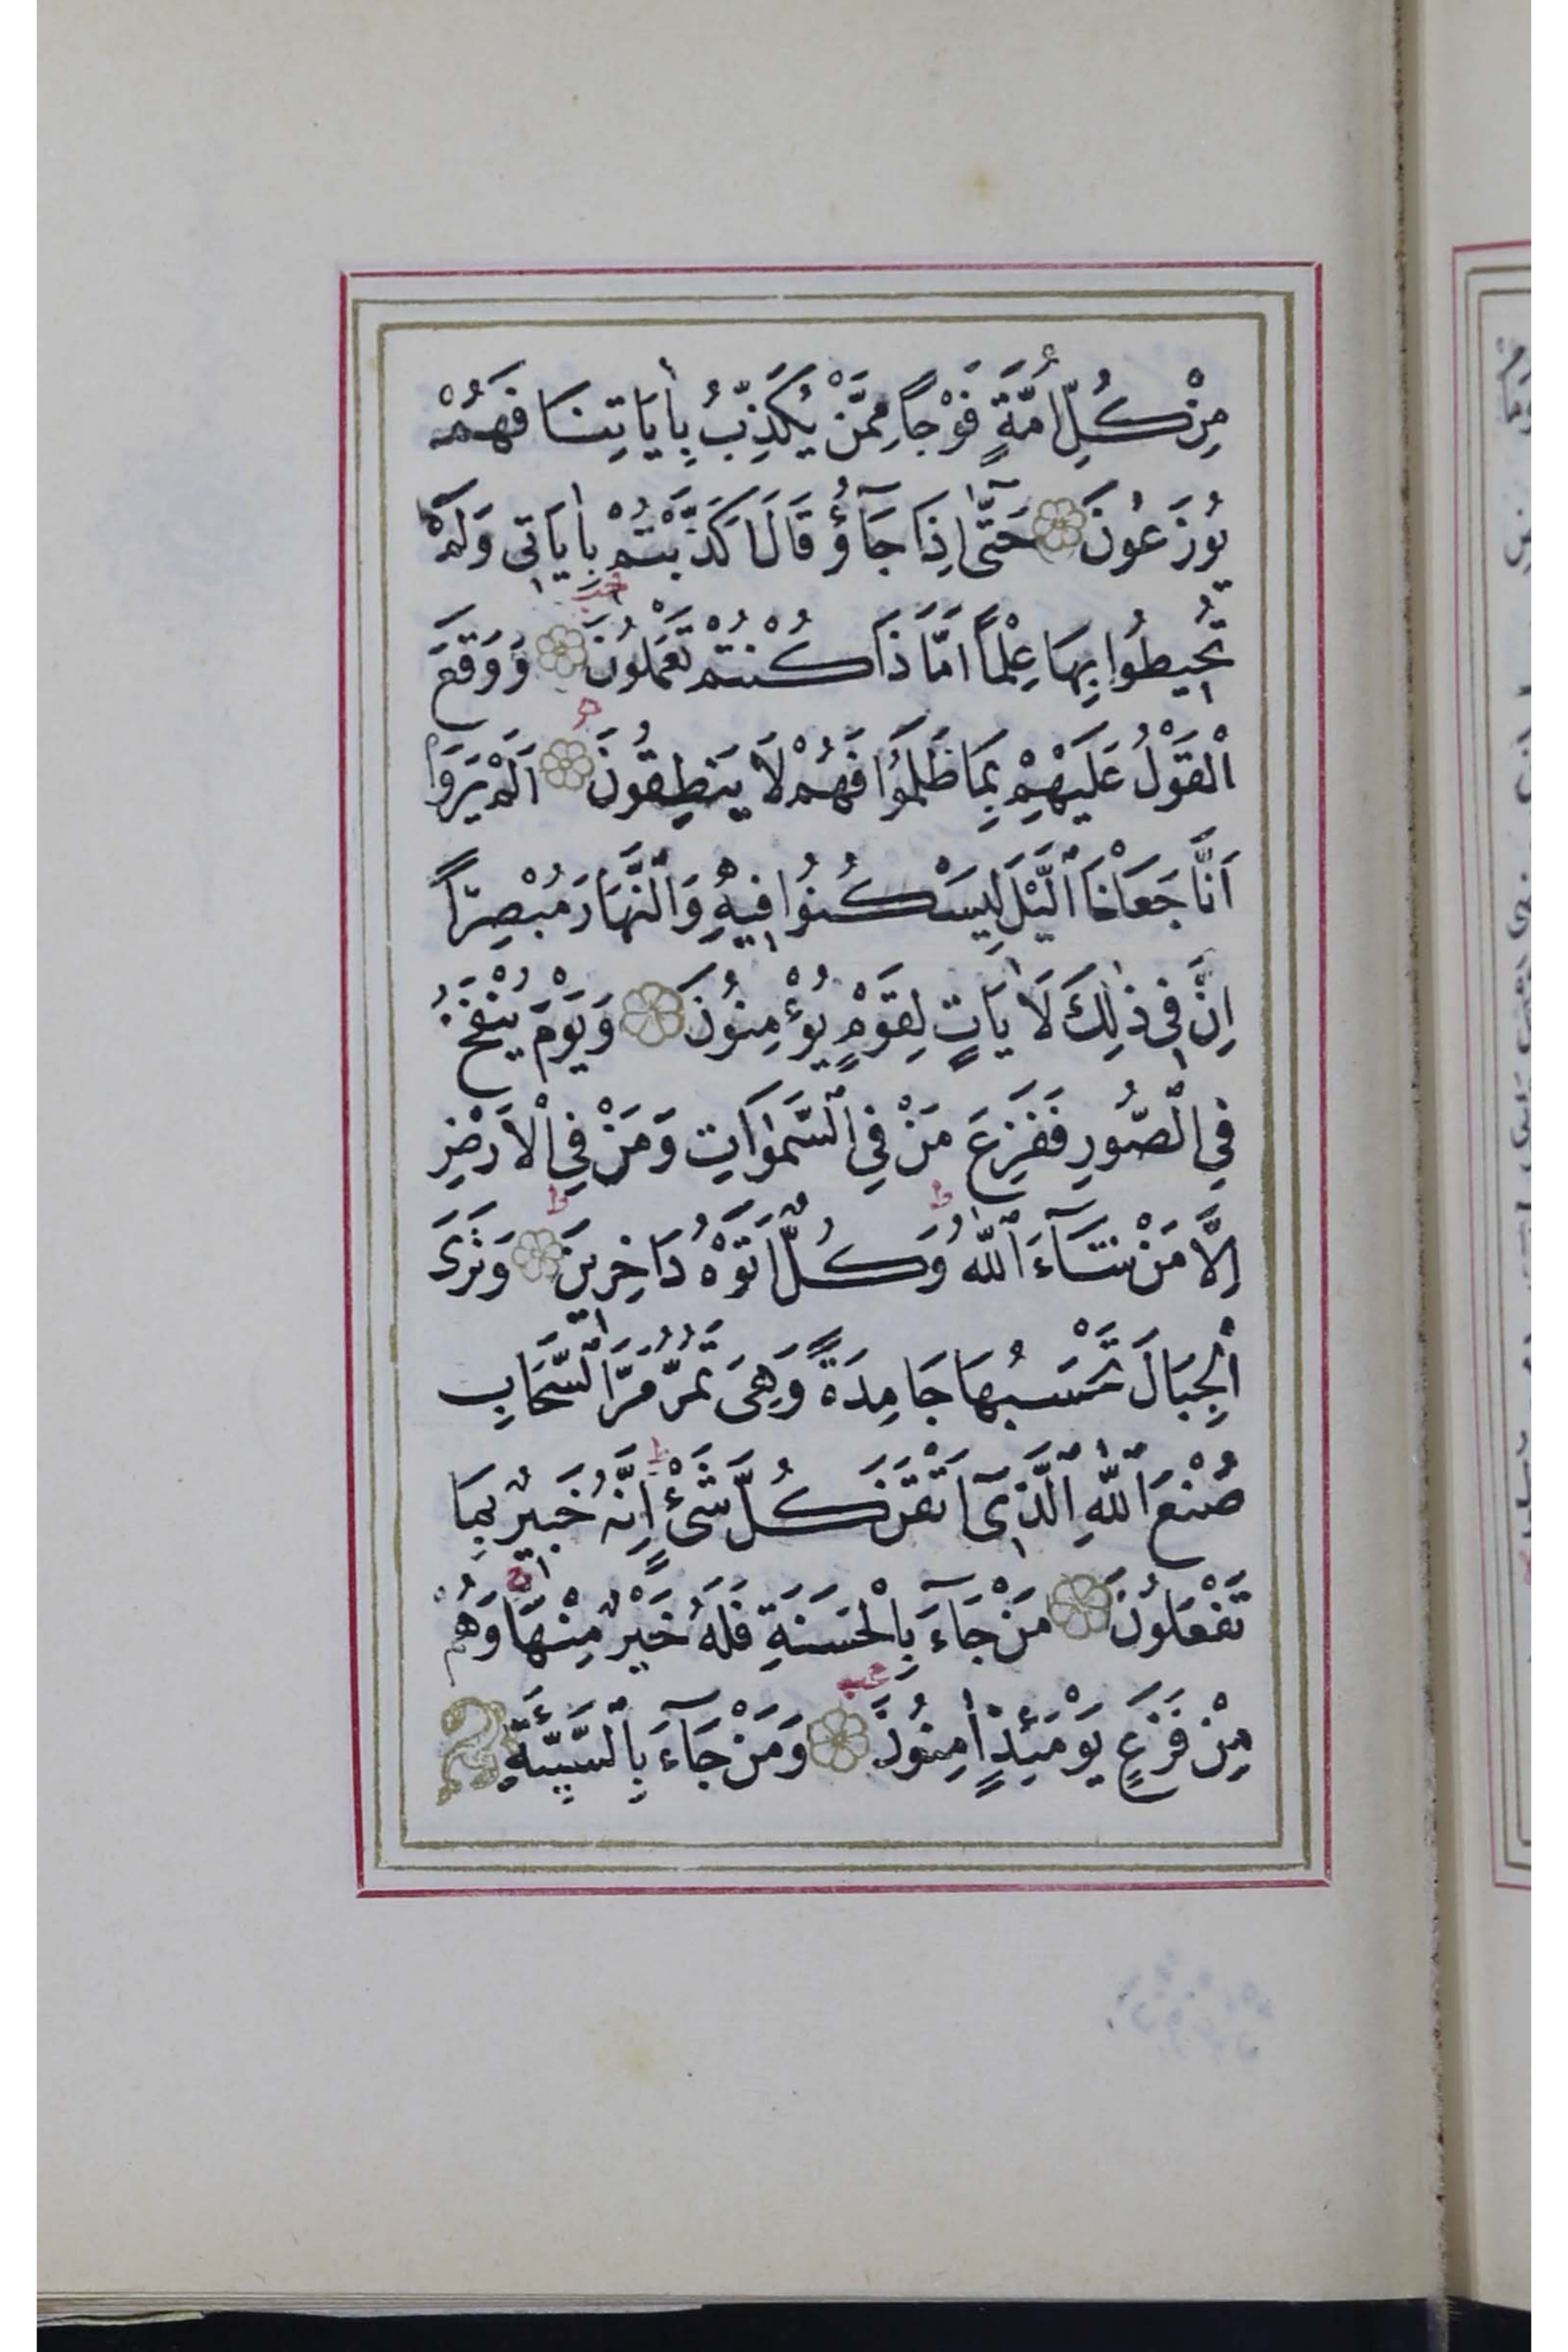 مِنْ كُلِّ اُمَّةٍ فَوْجًا مِمَّنْ يُكَذِّبُ بِاٰيَاتِنَا فَهُمْ
يُوزَعُونَ حَتّٰٓى اِذَا جَآؤُ قَالَ اَكَذَّبْتُمْ بِاٰيَاتِى وَلَمْ
تُحِيطُوا بِهَا عِلْمًا اَمَّا ذَا كُنْتُمْ تَعْمَلُونَ وَوَقَعَ
الْقَوْلُ عَلَيْهِمْ بِمَا ظَلَمُوا فَهُمْ لَا يَنْطِقُونَ اَلَمْ يَرَوْا
اَنَّا جَعَلْنَا ٱلَّيْلَ لِيَسْكُنُوا فِيهِ وَٱلنَّهَارَ مُبْصِرًا
اِنَّ فِى ذٰلِكَ لَاٰيَاتٍ لِقَوْمٍ يُؤْمِنُونَ وَيَوْمَ يُنْفَخُ
فِى ٱلصُّورِ فَفَزِعَ مَنْ فِى ٱلسَّمٰوَاتِ وَمَنْ فِى ٱلْاَرْضِ
اِلَّا مَنْ شَآءَ ٱللّٰهُ وَكُلٌّ اَتَوْهُ دَاخِرِينَ وَتَرَى
ٱلْجِبَالَ تَحْسَبُهَا جَامِدَةً وَهِىَ تَمُرُّ مَرَّ ٱلسَّحَابِ
صُنْعَ ٱللّٰهِ ٱلَّذِىٓ اَتْقَنَ كُلَّ شَىْءٍ اِنَّهُ خَبِيرٌ بِمَا
تَفْعَلُونَ مَنْ جَآءَ بِالْحَسَنَةِ فَلَهُ خَيْرٌ مِنْهَا وَهُمْ
مِنْ فَزَعٍ يَوْمَئِذٍ اٰمِنُونَ وَمَنْ جَآءَ بِٱلسَّيِّئَةِ